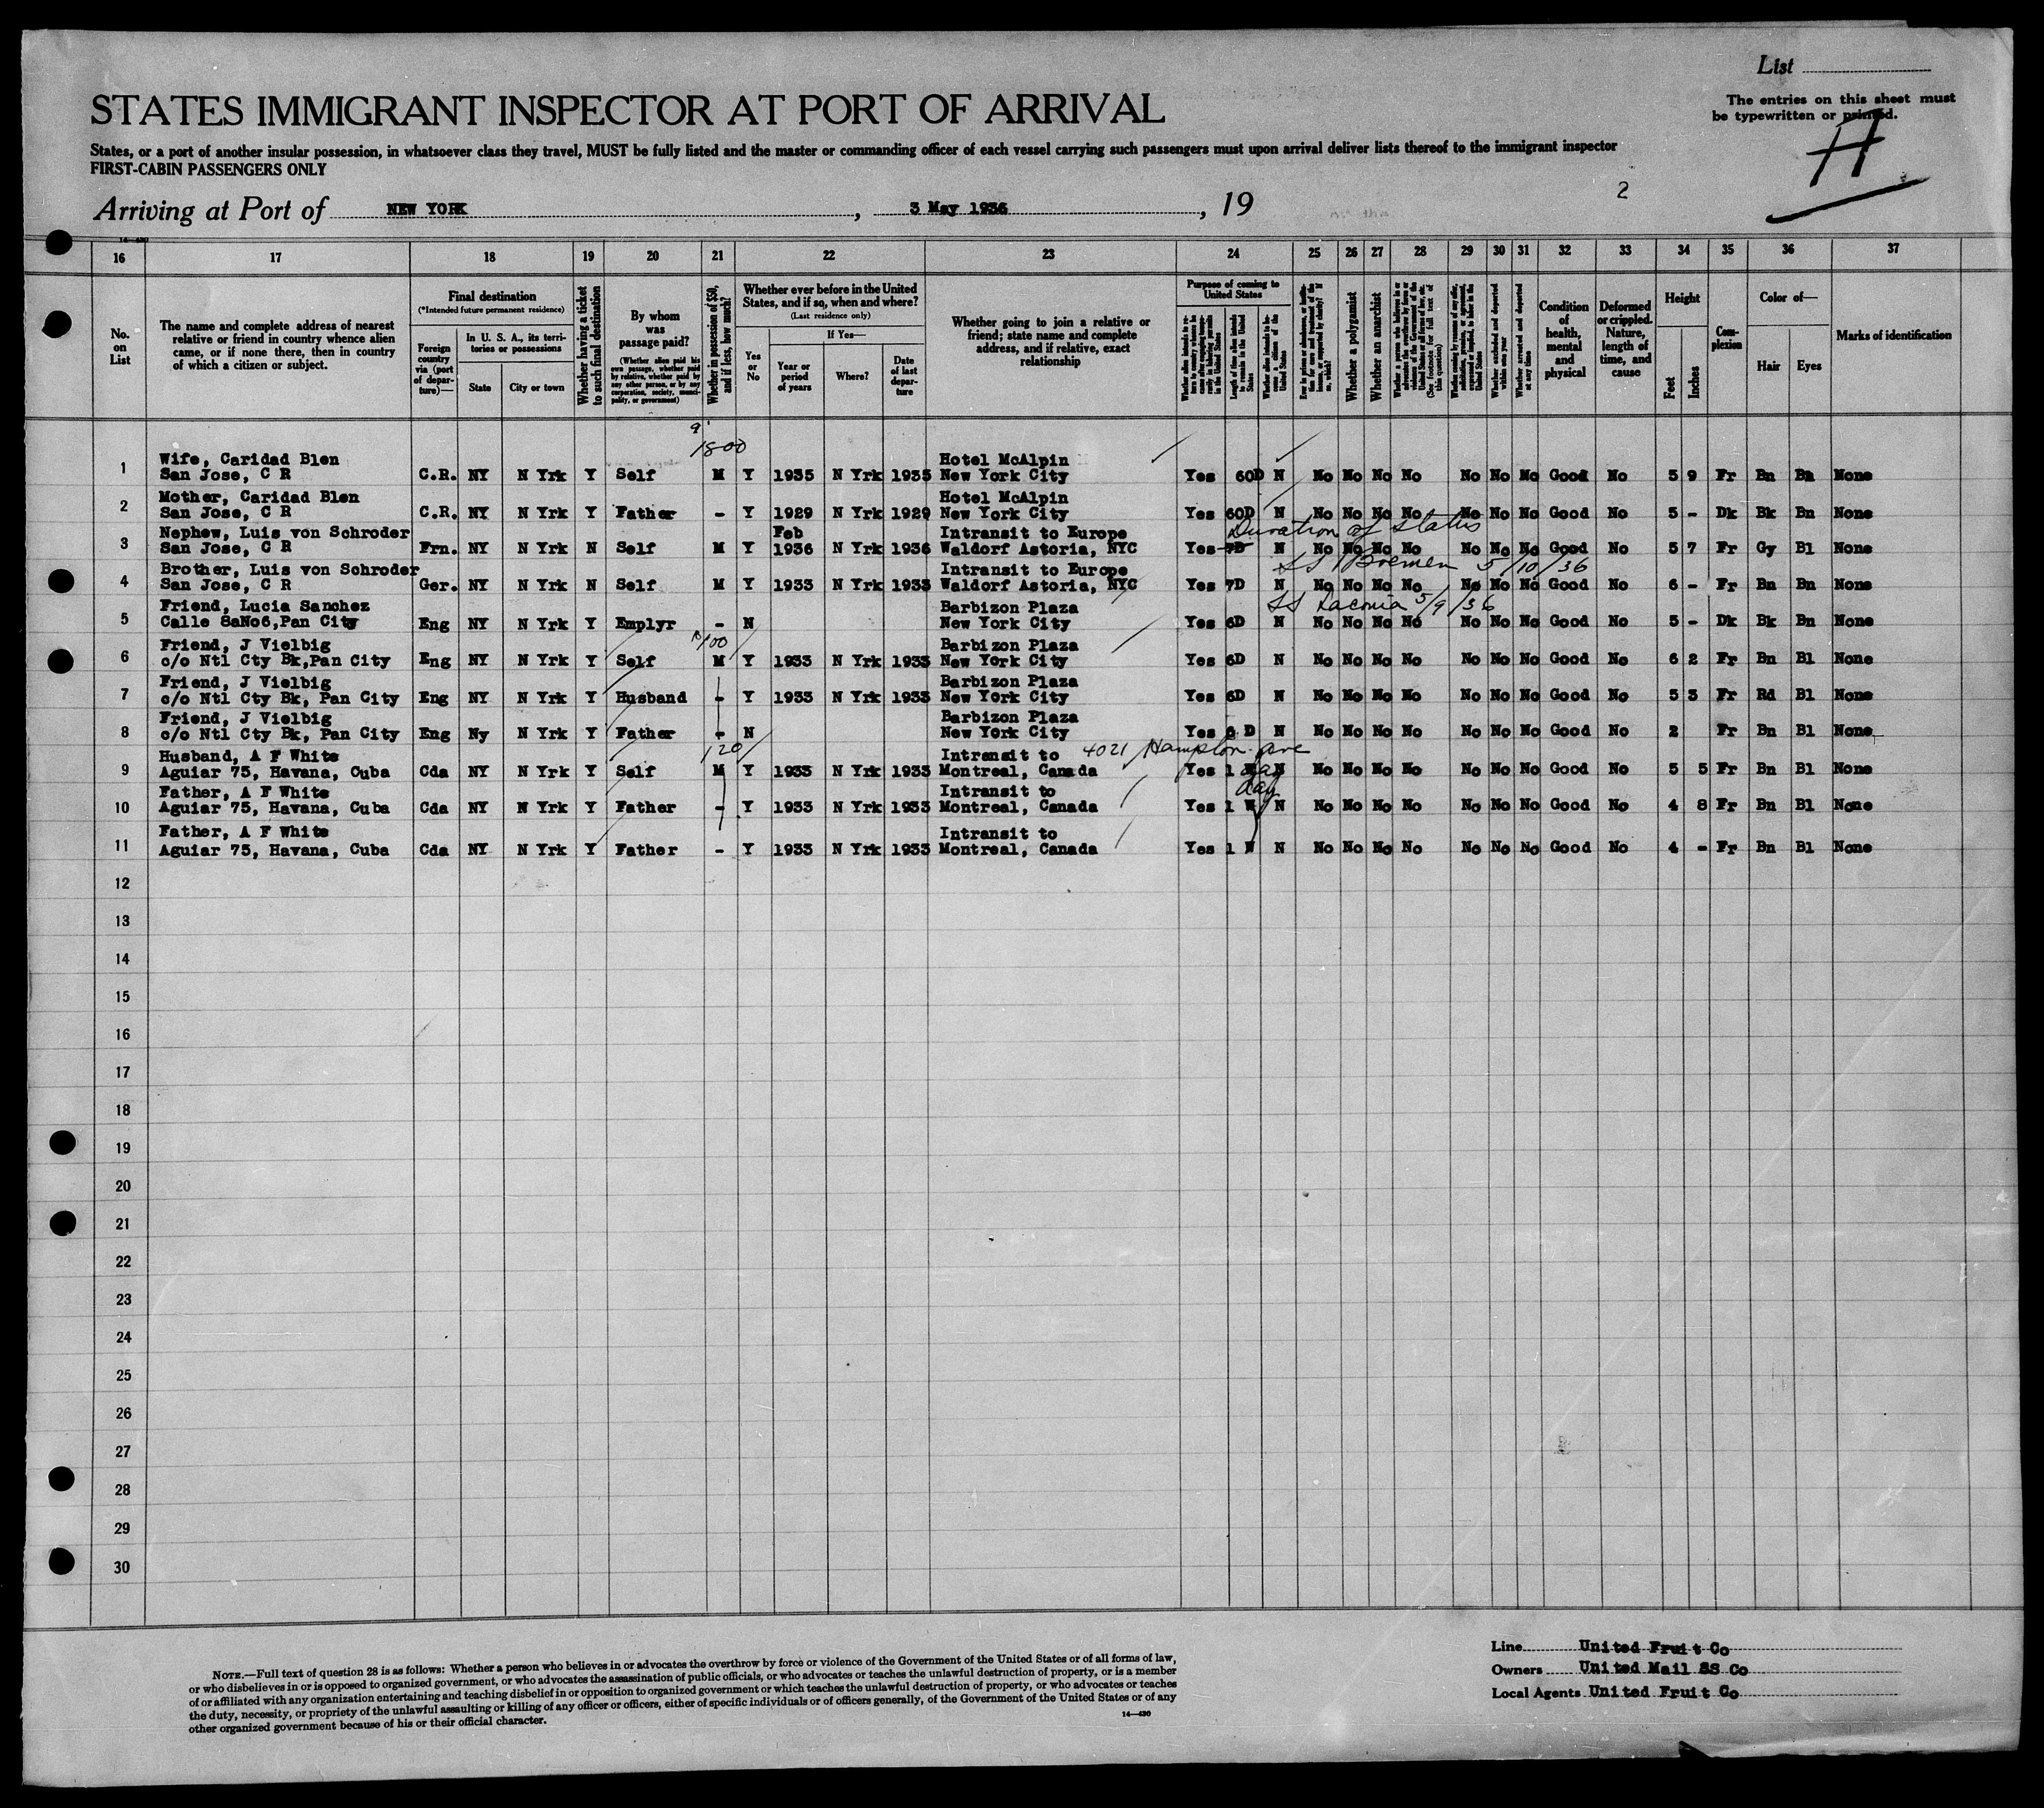 List
STATES IMMIGRANT INSPECTOR AT PORT OF ARRIVAL
The entries on this sheet must
be typewritten or printed.
H
States, or a port of another insular possession, in whatsoever class they travel, MUST be fully listed and the master or commanding officer of each vessel carrying such passengers must upon arrival deliver lists thereof to the immigrant inspector
FIRST-CABIN PASSENGERS ONLY
Arriving at Port of NEW YORK, 3 May 1936, 19
2
16 17 18 19 20 21 22 23 24 25 26 27 28 29 30 31 32 33 34 35 36 37
No. on List
The name and complete address of nearest relative or friend in country whence alien came, or if none there, then in country of which a citizen or subject.
Final destination
(*Intended future permanent residence)
Foreign country via (port of departure)—
In U. S. A., its territories or possessions
State
City or town
Whether having a ticket to such final destination
By whom was passage paid?
(Whether alien paid his own passage, whether paid by relative, whether paid by any other person, or by any corporation, society, municipality, or government)
Whether in possession of $50, and if less, how much?
Whether ever before in the United States, and if so, when and where?
(Last residence only)
Yes or No
If Yes—
Year or period of years
Where?
Date of last departure
Whether going to join a relative or friend; state name and complete address, and if relative, exact relationship
Purpose of coming to United States
Length of time alien intends to remain in the United States
Whether alien intends to become a citizen of the United States
Whether a polygamist
Whether an anarchist
Whether excluded and deported within one year
Whether arrested and deported at any time
Condition of health, mental and physical
Deformed or crippled. Nature, length of time, and cause
Height
Feet
Inches
Complexion
Color of—
Hair
Eyes
Marks of identification
1800
1 Wife, Caridad Blen Hotel McAlpin
San Jose, C R C.R. NY N Yrk Y Self M Y 1935 N Yrk 1935 New York City Yes 60D N No No No No No No No Good No 5 9 Fr Bn Bn None
2 Mother, Caridad Blen Hotel McAlpin
San Jose, C R C.R. NY N Yrk Y Father - Y 1929 N Yrk 1929 New York City Yes 60D N No No No No No No No Good No 5 - Dk Bk Bn None
Duration of status
3 Nephew, Luis von Schroder Feb Intransit to Europe
San Jose, C R Frn. NY N Yrk N Self M Y 1936 N Yrk 1936 Waldorf Astoria, NYC Yes 7D N No No No No No No No Good No 5 7 Fr Gy Bl None
SS Bremen 5/10/36
4 Brother, Luis von Schroder Intransit to Europe
San Jose, C R Ger. NY N Yrk N Self M Y 1933 N Yrk 1933 Waldorf Astoria, NYC Yes 7D N No No No No No No No Good No 6 - Fr Bn Bn None
SS Laconia 5/9/36
5 Friend, Lucia Sanchez Barbizon Plaza
Calle 8aNo6,Pan City Eng NY N Yrk Y Emplyr - N New York City Yes 6D N No No No No No No No Good No 5 - Dk Bk Bn None
100
6 Friend, J Vielbig Barbizon Plaza
c/o Ntl Cty Bk,Pan City Eng NY N Yrk Y Self M Y 1933 N Yrk 1933 New York City Yes 6D N No No No No No No No Good No 6 2 Fr Bn Bl None
7 Friend, J Vielbig Barbizon Plaza
c/o Ntl Cty Bk, Pan City Eng NY N Yrk Y Husband - Y 1933 N Yrk 1933 New York City Yes 6D N No No No No No No No Good No 5 3 Fr Rd Bl None
8 Friend, J Vielbig Barbizon Plaza
c/o Ntl Cty Bk, Pan City Eng Ny N Yrk Y Father - N New York City Yes 6 D N No No No No No No No Good No 2 Fr Bn Bl None
120 4021 Hampton ave
9 Husband, A F White Intransit to
Aguiar 75, Havana, Cuba Cda NY N Yrk Y Self M Y 1933 N Yrk 1933 Montreal, Canada Yes 1 day N No No No No No No No Good No 5 5 Fr Bn Bl None
10 Father, A F White Intransit to
Aguiar 75, Havana, Cuba Cda NY N Yrk Y Father - Y 1933 N Yrk 1933 Montreal, Canada Yes 1 W day N No No No No No No No Good No 4 8 Fr Bn Bl None
11 Father, A F White Intransit to
Aguiar 75, Havana, Cuba Cda NY N Yrk Y Father - Y 1933 N Yrk 1933 Montreal, Canada Yes 1 W N No No No No No No No Good No 4 - Fr Bn Bl None
12
13
14
15
16
17
18
19
20
21
22
23
24
25
26
27
28
29
30
NOTE.—Full text of question 28 is as follows: Whether a person who believes in or advocates the overthrow by force or violence of the Government of the United States or of all forms of law,
or who disbelieves in or is opposed to organized government, or who advocates the assassination of public officials, or who advocates or teaches the unlawful destruction of property, or is a member
of or affiliated with any organization entertaining and teaching disbelief in or opposition to organized government or which teaches the unlawful destruction of property, or who advocates or teaches
the duty, necessity, or propriety of the unlawful assaulting or killing of any officer or officers, either of specific individuals or of officers generally, of the Government of the United States or of any
other organized government because of his or their official character.
14—430
Line United Fruit Co
Owners United Mail SS Co
Local Agents United Fruit Co